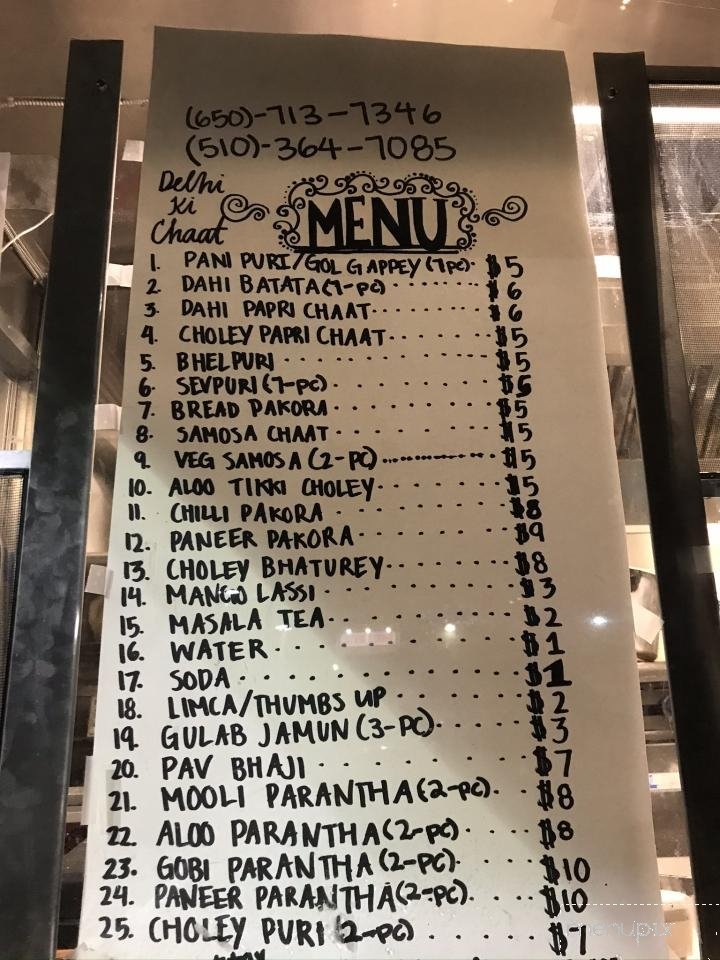 (650)-713-7346
(510)-364-7085
Delhi
Ki
Chaat
MENU
1. PANI PURI/GOL GAPPEY (7pc). $5
2. DAHI BATATA (7-pc) $6
3. DAHI PAPRI CHAAT $6
4. CHOLEY PAPRI CHAAT $5
5. BHELPURI $5
6. SEVPURI (7-pc) $5
7. BREAD PAKORA $5
8. SAMOSA CHAAT $5
9. VEG SAMOSA (2-PC) $5
10. ALOO TIKKI CHOLEY $5
11. CHILLI PAKORA $8
12. PANEER PAKORA $9
13. CHOLEY BHATUREY $8
14. MANGO LASSI $3
15. MASALA TEA $2
16. WATER $1
17. SODA $1
18. LIMCA/THUMBS UP $2
19. GULAB JAMUN (3-PC) $3
20. PAV BHAJI $7
21. MOOLI PARANTHA (2-pc). $8
22. ALOO PARANTHA (2-pc) $8
23. GOBI PARANTHA (2-PC) $10
24. PANEER PARANTHA (2-pc). $10
25. CHOLEY PURI (2-pc) $7
menupix